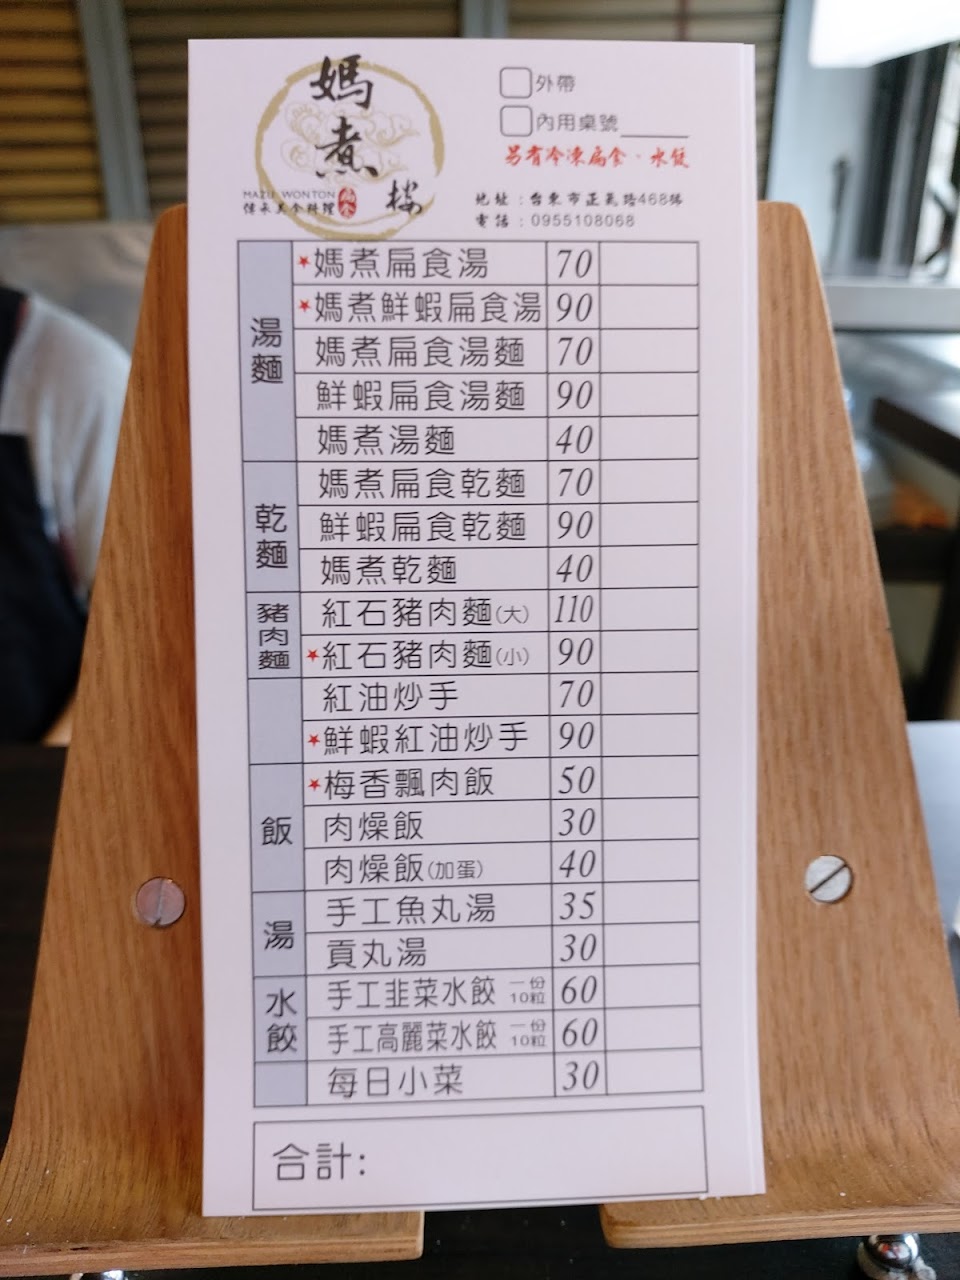 媽煮樓
MAZU WONTON
傳承美食料理 扁食
外帶
內用桌號
另有冷凍扁食·水餃
地址:台東市正氣路468號
電話:0955108068
湯麵
★媽煮扁食湯 70
★媽煮鮮蝦扁食湯 90
媽煮扁食湯麵 70
鮮蝦扁食湯麵 90
媽煮湯麵 40
乾麵
媽煮扁食乾麵 70
鮮蝦扁食乾麵 90
媽煮乾麵 40
豬肉麵
紅石豬肉麵(大) 110
★紅石豬肉麵(小) 90
紅油炒手 70
★鮮蝦紅油炒手 90
飯
★梅香飄肉飯 50
肉燥飯 30
肉燥飯(加蛋) 40
湯
手工魚丸湯 35
貢丸湯 30
水餃
手工韭菜水餃 一份10粒 60
手工高麗菜水餃 一份10粒 60
每日小菜 30
合計: